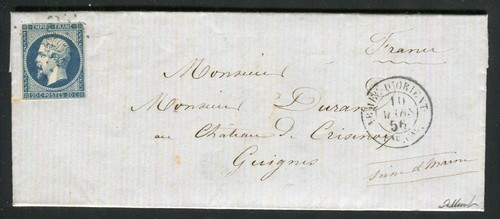 EMPIRE FRANC
20 C POSTES 20 C
France
Monsieur
Monsieur Durand
au Château de Crisenoy
Guignes
Seine et Marne
ARMÉE D'ORIENT
10
MARS
56